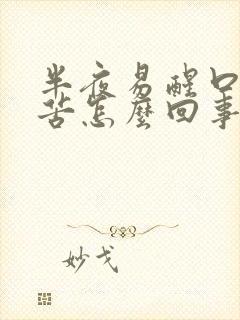 半夜易醒口
苦怎麼回事
妙戈